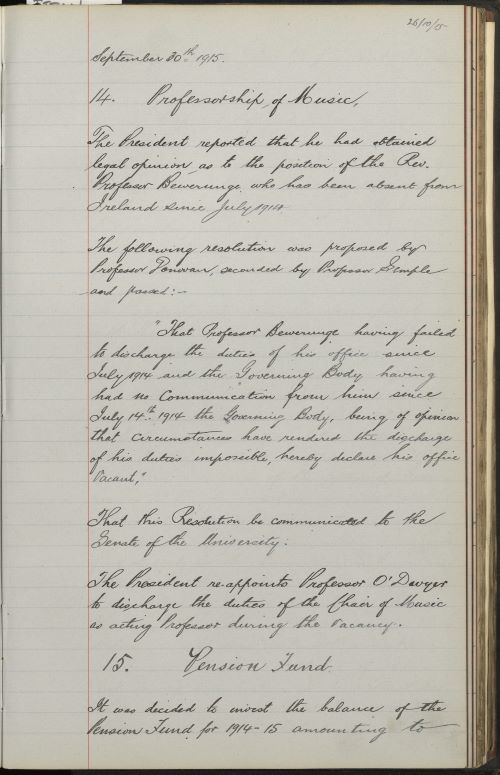 26/10/15
September 30th 1915.
14. Professorship of Music.
The President reported that he had obtained
legal opinion as to the position of the Rev.
Professor Bewerunge who has been absent from
Ireland since July 1914
The following resolution was proposed by
Professor Donovan, seconded by Professor Semple
and passed:-
"That Professor Bewerunge having failed
to discharge the duties of his office since
July 1914 and the Governing Body having
had no Communication from him since
July 14th 1914 the Governing Body, being of opinion
that circumstances have rendered the discharge
of his duties impossible, hereby declare his office
Vacant."
That this Resolution be communicated to the
Senate of the University.
The President re-appoints Professor O'Dwyer
to discharge the duties of the Chair of Music
as acting Professor during the Vacancy.
15. Pension Fund.
It was decided to invest the balance of the
Pension Fund for 1914-15 amounting to